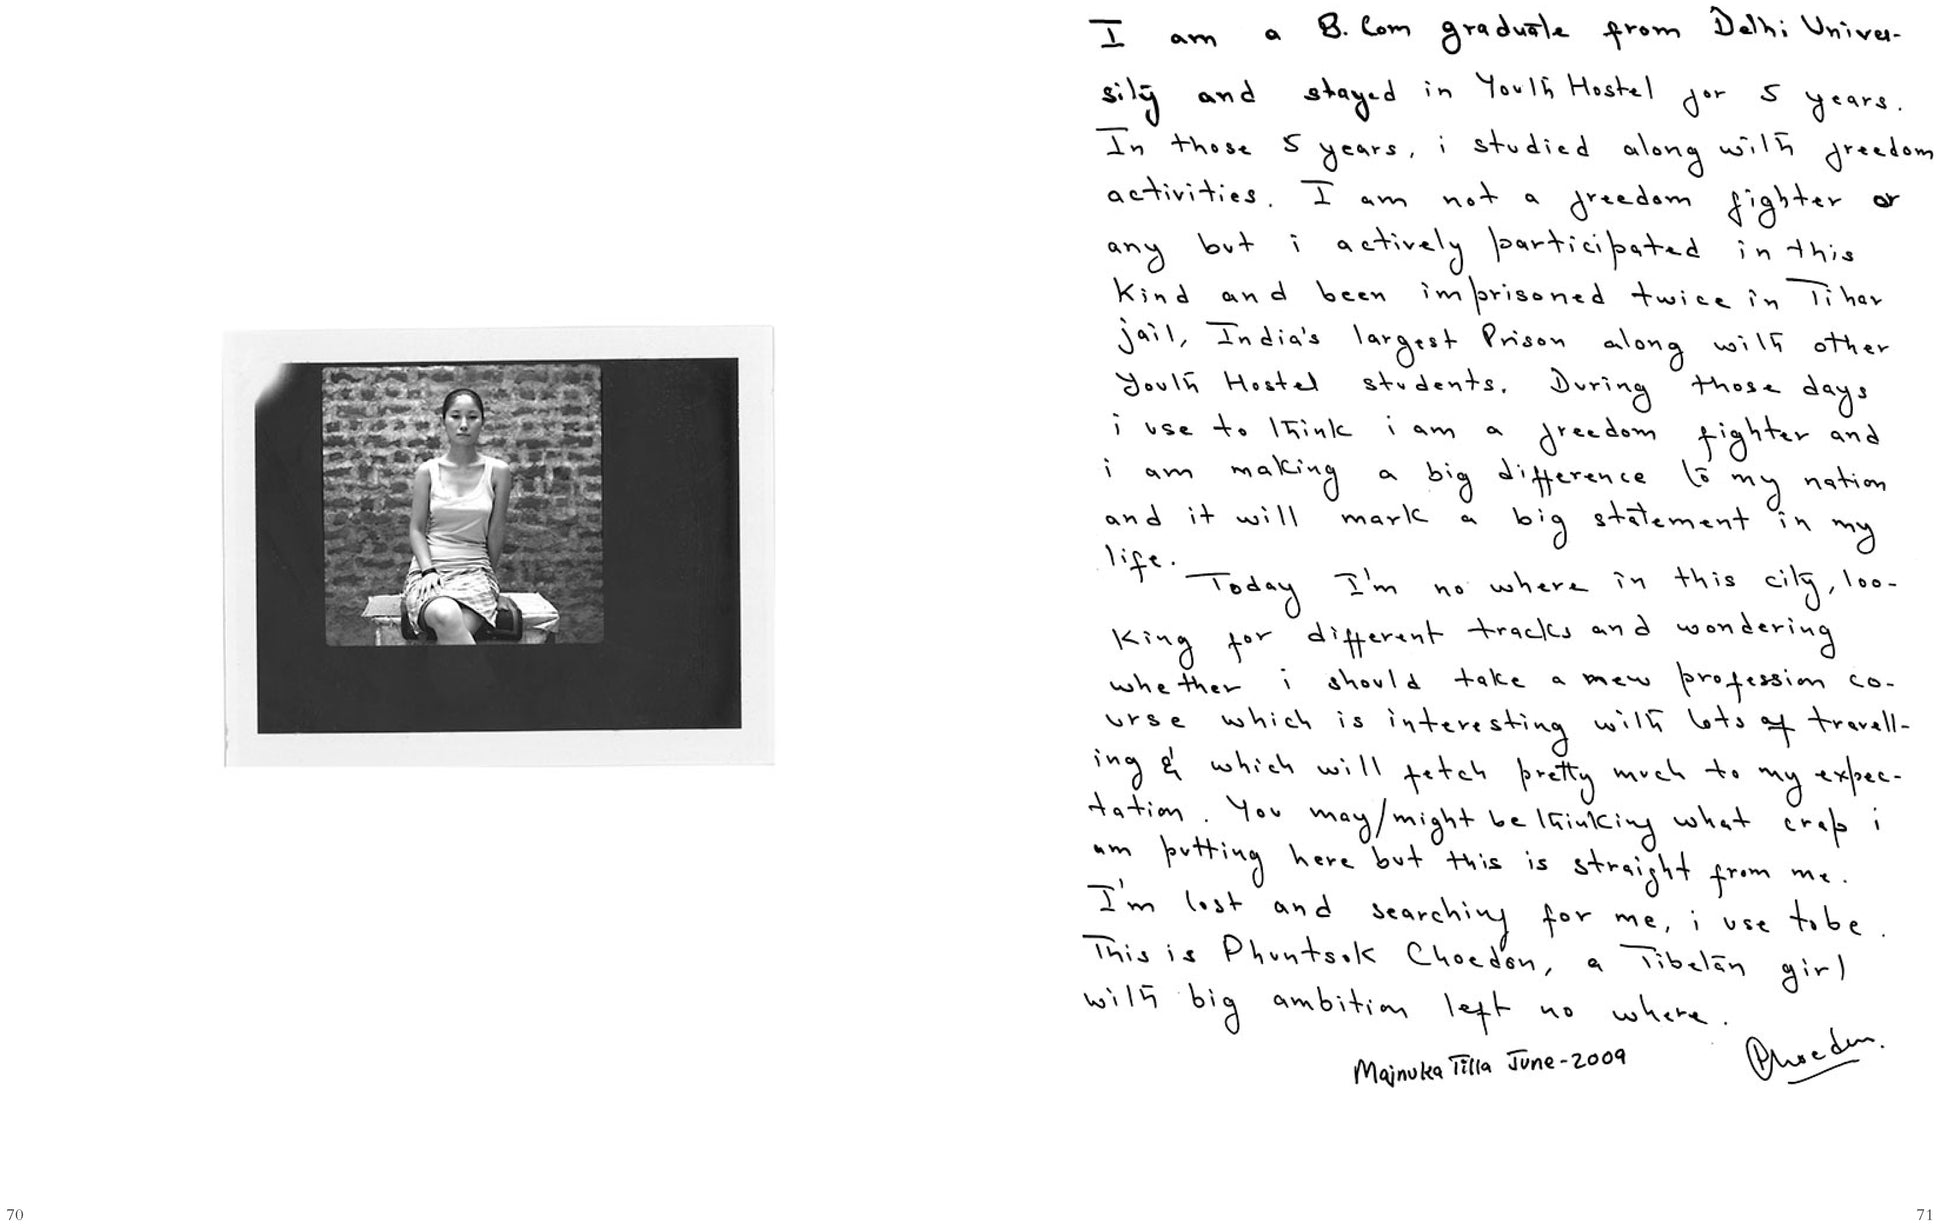 I am a B. Com graduate from Delhi Univer-
sity and stayed in Youth Hostel for 5 years.
In those 5 years, i studied along with freedom
activities. I am not a freedom fighter or
any but i actively participated in this
kind and been imprisoned twice in Tihar
jail, India's largest Prison along with other
Youth Hostel students. During those days
i use to think i am a freedom fighter and
i am making a big difference to my nation
and it will mark a big statement in my
life.
Today I'm no where in this city, loo-
king for different tracks and wondering
whether i should take a new profession co-
urse which is interesting with lots of travell-
ing & which will fetch pretty much to my expec-
tation. You may/might be thinking what crap i
am putting here but this is straight from me.
I'm lost and searching for me, i use to be.
This is Phuntsok Choedon, a Tibetan girl
with big ambition left no where.
Majnuka Tilla June-2009
70
71